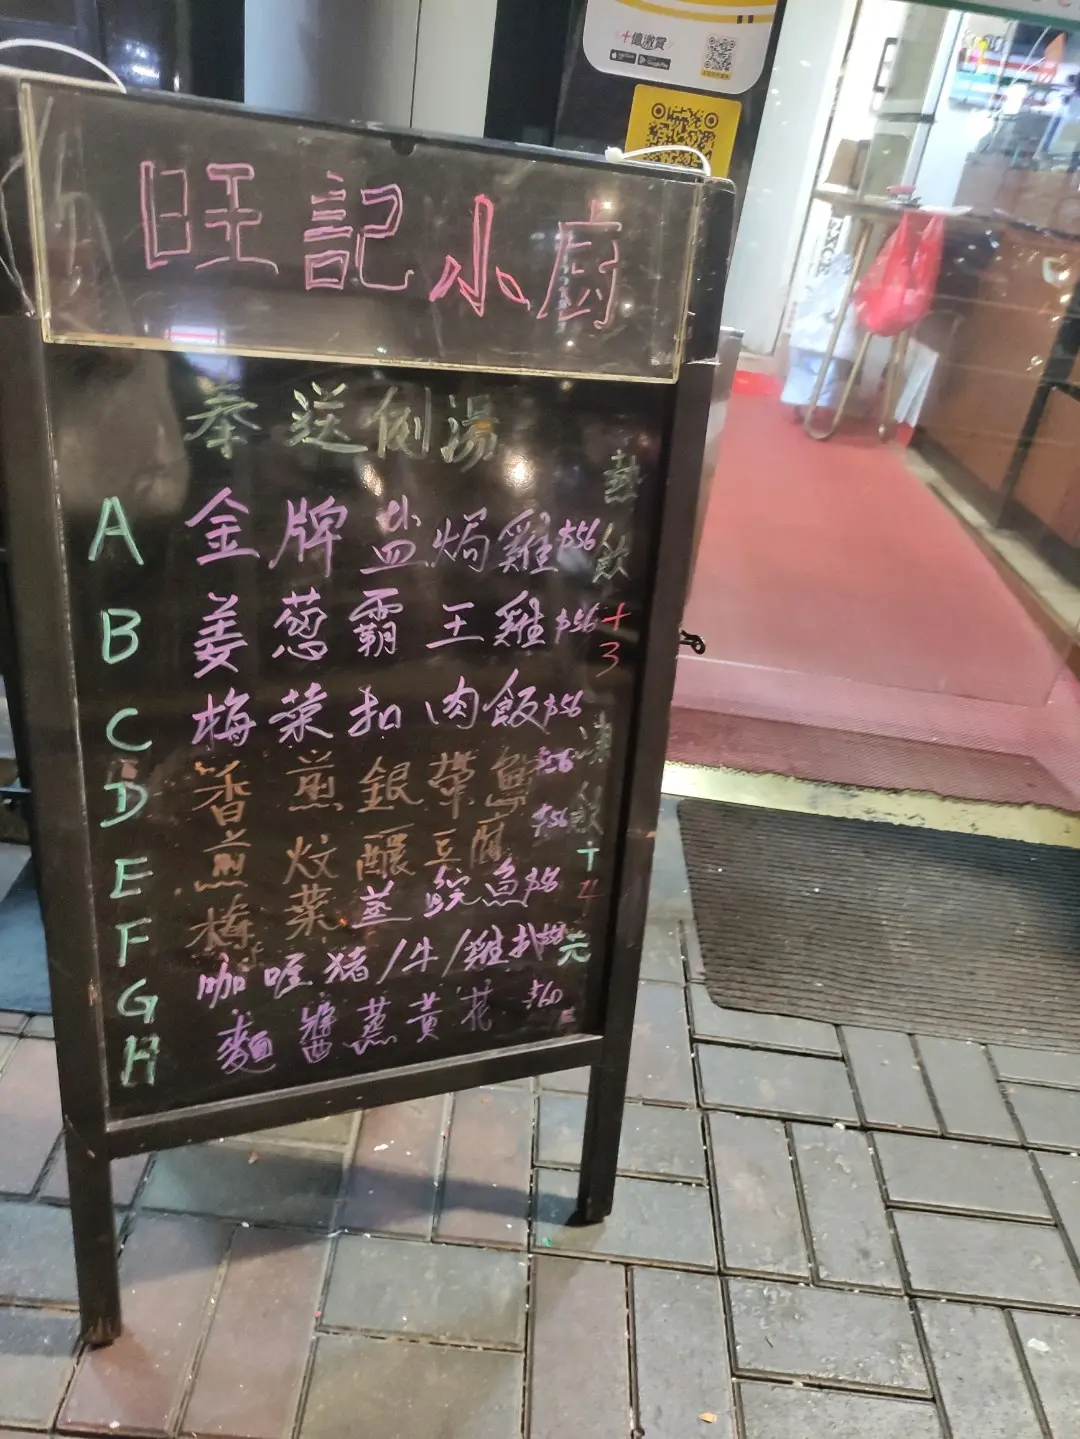 十億激賞
旺記小廚
奉送例湯
A 金牌盐焗雞 $56
B 姜葱霸王雞 $56
C 梅菜扣肉飯 $56
D 香煎銀帶魚 $56
E 煎炆釀豆腐 $56
F 梅菜蒸鯇魚 $56
G 咖喱豬/牛/雞扒
H 麵醬蒸黃花 $60
熱飲+3
凍飲+4元